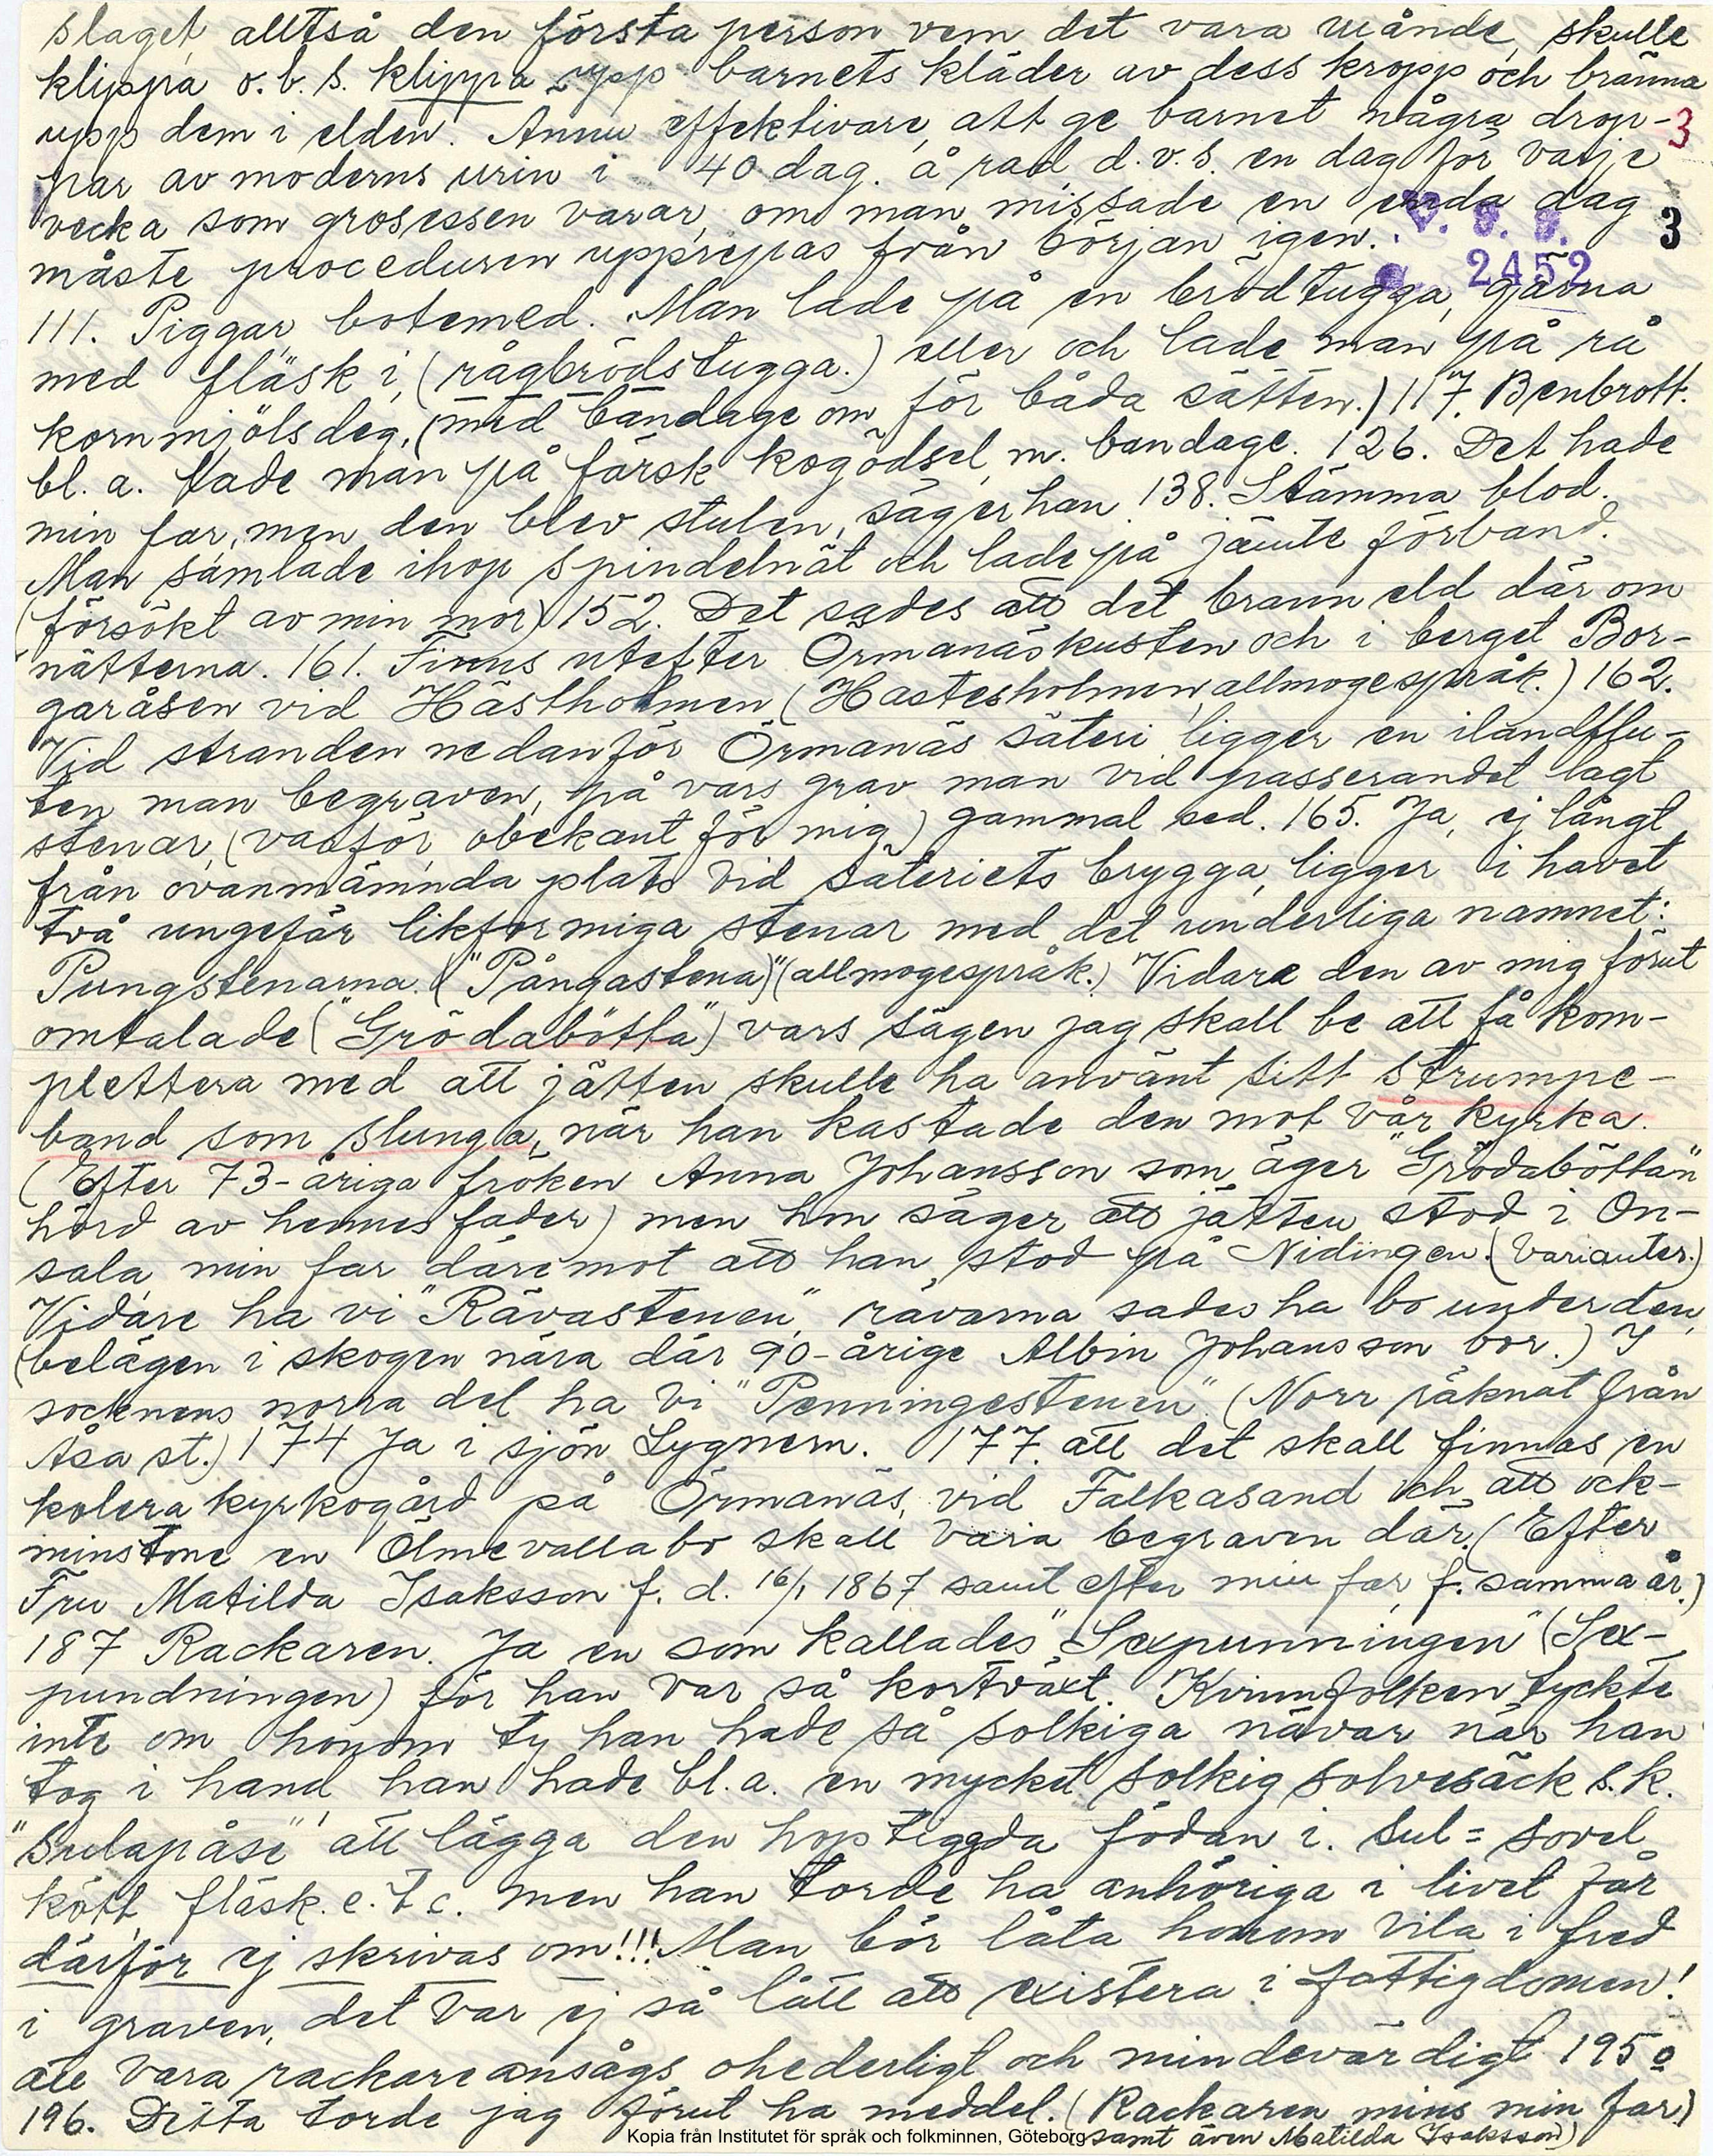 slaget, alltså den första person vem det vara månde, skulle
klippa o.b.s. klippa upp barnets kläder av dess kropp och bränna
upp dem i elden. Ännu effektivare, att ge barnet några drop-
3
par av moderns urin i 40 dag. å rad d.v.s. en dag för varje
vecka som grosessen varar, om man missade en enda dag
V. S. S.
3
måste proceduren upprepas från början igen.
2452
111. Piggar, botemed. Man lade på en brödtugga, gärna
med fläsk i, (rågbrödstugga.) eller och lade man på rå
kornmjölsdeg, (med bandage om för båda sätten.) 117. Benbrott.
bl. a. lade man på färsk kogödsel, m. bandage. 126. Det hade
min far, men den blev stulen, säger han. 138. Stämma blod.
Man samlade ihop spindelnät och lade på jämte förband.
(försökt av min mor) 152. Det sades att det brann eld där om
nätterna. 161. Finns utefter Örmanäskusten och i berget Bor-
garåsen vid Hästholmen (Hästesholmen, allmogespråk.) 162.
Vid stranden nedanför Örmanäs säteri ligger en ilandflu-
ten man begraven, på vars grav man vid passerandet lagt
stenar, (varför, obekant för mig) gammal sed. 165. Ja, ej långt
från ovanmämnda plats vid säteriets brygga, ligger i havet
två ungefär likformiga stenar med det underliga namnet:
Pungstenarna. ("Pångastena") (allmogespråk.) Vidare den av mig förut
omtalade ("Grödabötta") vars sägen jag skall be att få kom-
plettera med att jätten skulle ha använt sitt strumpe-
band som slunga, när han kastade den mot vår kyrka.
(Efter 73-åriga fröken Anna Johansson som äger "Grödaböttan"
hörd av hennes fader) men hon säger att jätten stod i On-
sala, min far däremot att han stod på Nidingen. (Varianter.)
Vidare ha vi "Rävastenen", rävarna sades ha bo under den,
(belägen i skogen nära där 90-årige Albin Johansson bor.) I
socknens norra del ha vi "Penningestenen". (Norr räknat från
Åsa st.) 174 Ja i sjön Lygnern. 177. att det skall finnas en
kolera kyrkogård på Örmanäs, vid Falkasand och att ock-
minstone en Ölmevallabo skall vara begraven där. (Efter
Fru Matilda Isaksson f. d. 16/1 1867 samt efter min far, f. samma år.)
187 Rackaren. Ja en som kallades "Sexpunningen" (Sex-
pundningen) för han var så kortväxt. Kvinnfolken tyckte
inte om honom ty han hade så solkiga nävar när han
tog i hand, han hade bl.a. en mycket solkig solvesäck s.k.
"Sulapåse" att lägga den hoptiggda födan i. Sul = sovel
kött, fläsk. e.t.c. men han torde ha anhöriga i livet får
därför ej skrivas om!!! Man bör låta honom vila i fred
i graven, det var ej så lätt att existera i fattigdomen!
att vara rackare ansågs ohederligt och mindevärdigt. 195 o
196. Detta torde jag förut ha meddel. (Rackaren mins min far)
samt även Matilda Isaksson)
Kopia från Institutet för språk och folkminnen, Göteborg